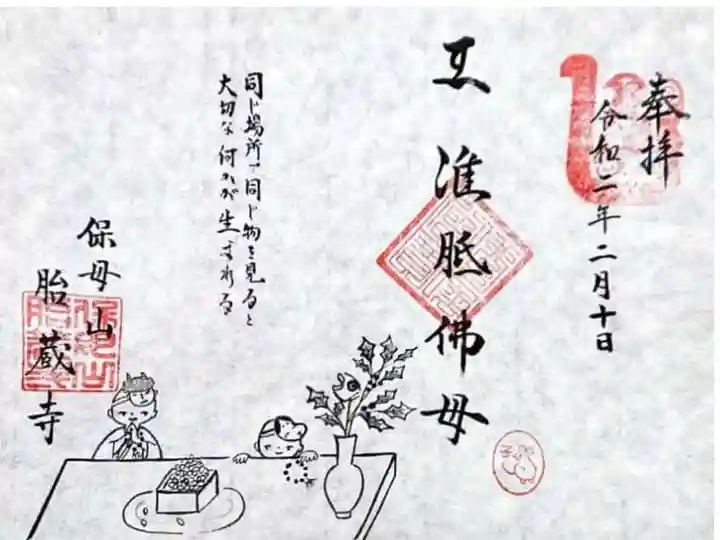 奉拝
令和二年二月十日
准胝佛母
同じ場所で同じ物を見ると
大切な何かが生まれる
保母山
胎蔵寺